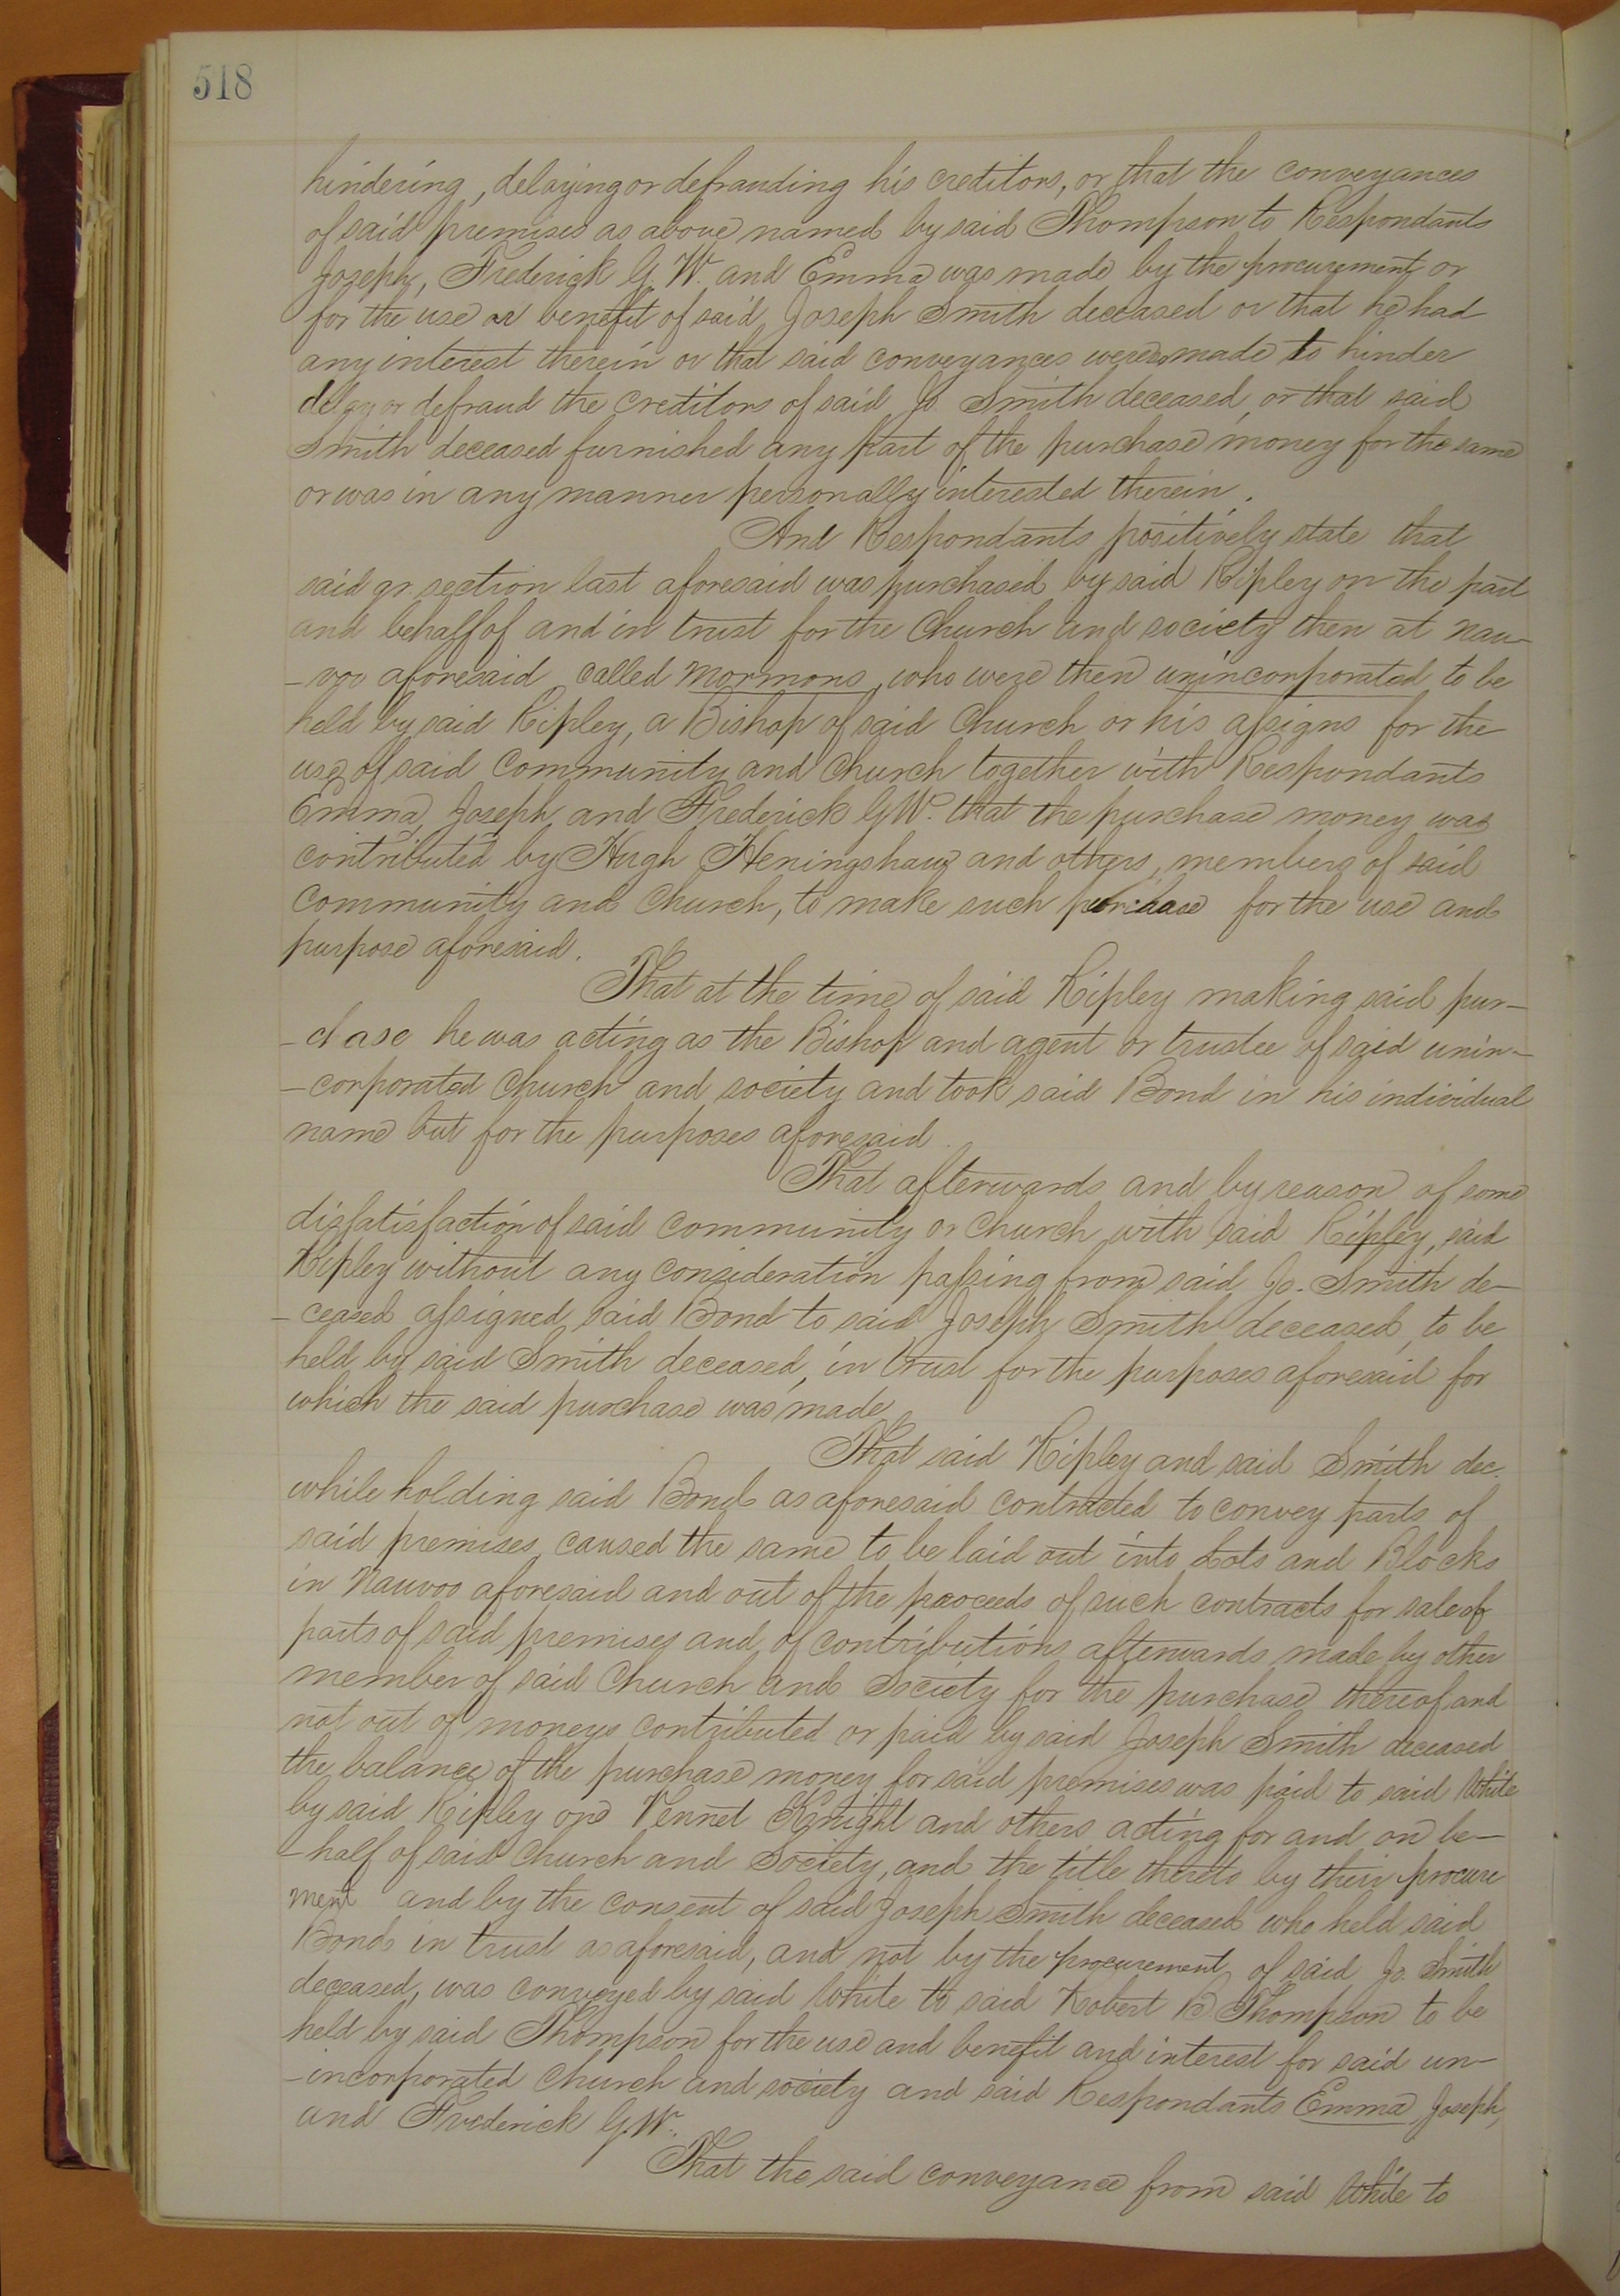 518
hindering, delaying or defrauding his creditors, or that the conveyances
of said premises as above named by said Thompson to Respondants
Joseph, Frederick G. W. and Emma was made by the procurement or
for the use or benefit of said Joseph Smith deceased or that he had
any interest therein or that said conveyances were made to hinder
delay or defraud the creditors of said Jo. Smith deceased, or that said
Smith deceased furnished any part of the purchase money for the same
or was in any manner personally interested therein.
And Respondants positively state that
said qr. section last aforesaid was purchased by said Ripley on the part
and behalf of and in trust for the Church and society then at Nau-
-voo aforesaid called Mormons, who were then unincorporated to be
held by said Ripley, a Bishop of said Church or his assigns for the
use of said Community and Church together with Respondants
Emma, Joseph, and Frederick G W. that the purchase money was
contributed by Hugh Heningshaw and others, members of said
Community and Church, to make such purchase for the use and
purpose aforesaid.
That at the time of said Ripley making said pur-
-chase he was acting as the Bishop and agent or trustee of said unin-
-corporated Church and society and took said Bond in his individual
name but for the purposes aforesaid.
That afterwards and by reason of some
dissatisfaction of said community or church with said Ripley, said
Ripley without any consideration passing from said Jo. Smith de-
-ceased assigned said Bond to said Joseph Smith deceased, to be
held by said Smith deceased, in trust for the purposes aforesaid for
which the said purchase was made.
That said Ripley and said Smith dec.
while holding said Bond as aforesaid contracted to convey parts of
said premises, caused the same to be laid out into Lots and Blocks
in Nauvoo aforesaid and out of the proceeds of such contracts for sale of
parts of said premises and of contributions afterwards made by other
member of said Church and Society for the purchase thereof and
not out of moneys contributed or paid by said Joseph Smith deceased
the balance of the purchase money for said premises was paid to said White
by said Ripley one Vennel Knight and others acting for and on be-
-half of said Church and Society, and the title thereto by their procure
ment and by the consent of said Joseph Smith deceased who held said
Bond in trust as aforesaid, and not by the procurement of said Jo. Smith
deceased, was conveyed by said White to said Robert B. Thompson to be
held by said Thompson for the use and benefit and interest for said un-
-incorporated Church and society and said Respondants Emma, Joseph,
and Frederick G. W.
That the said conveyance from said White to